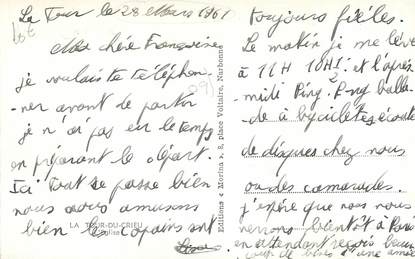 La Tour le 28 Mars 1961
Ma chère Françoise
je voulais te téléphon-
ner avant de partir
je n'ai pas eu le temps
en préparant le départ.
Ici tout se passe bien
nous nous amusons
bien les copains sont
toujours fidèles.
Le matin je me lève
à 11H 10H1/2 et l'après
midi Ping-Pong balla-
de à bicyclettes écoute
de disques chez nous
ou des camarades.
j'espère que nous nous
verrons bientôt à Paris
en attendant reçois beau
coup de bises d'une amie
Editions « Morina », 8, place Voltaire, Narbonne
LA TOUR-DU-CRIEU
L'Eglise